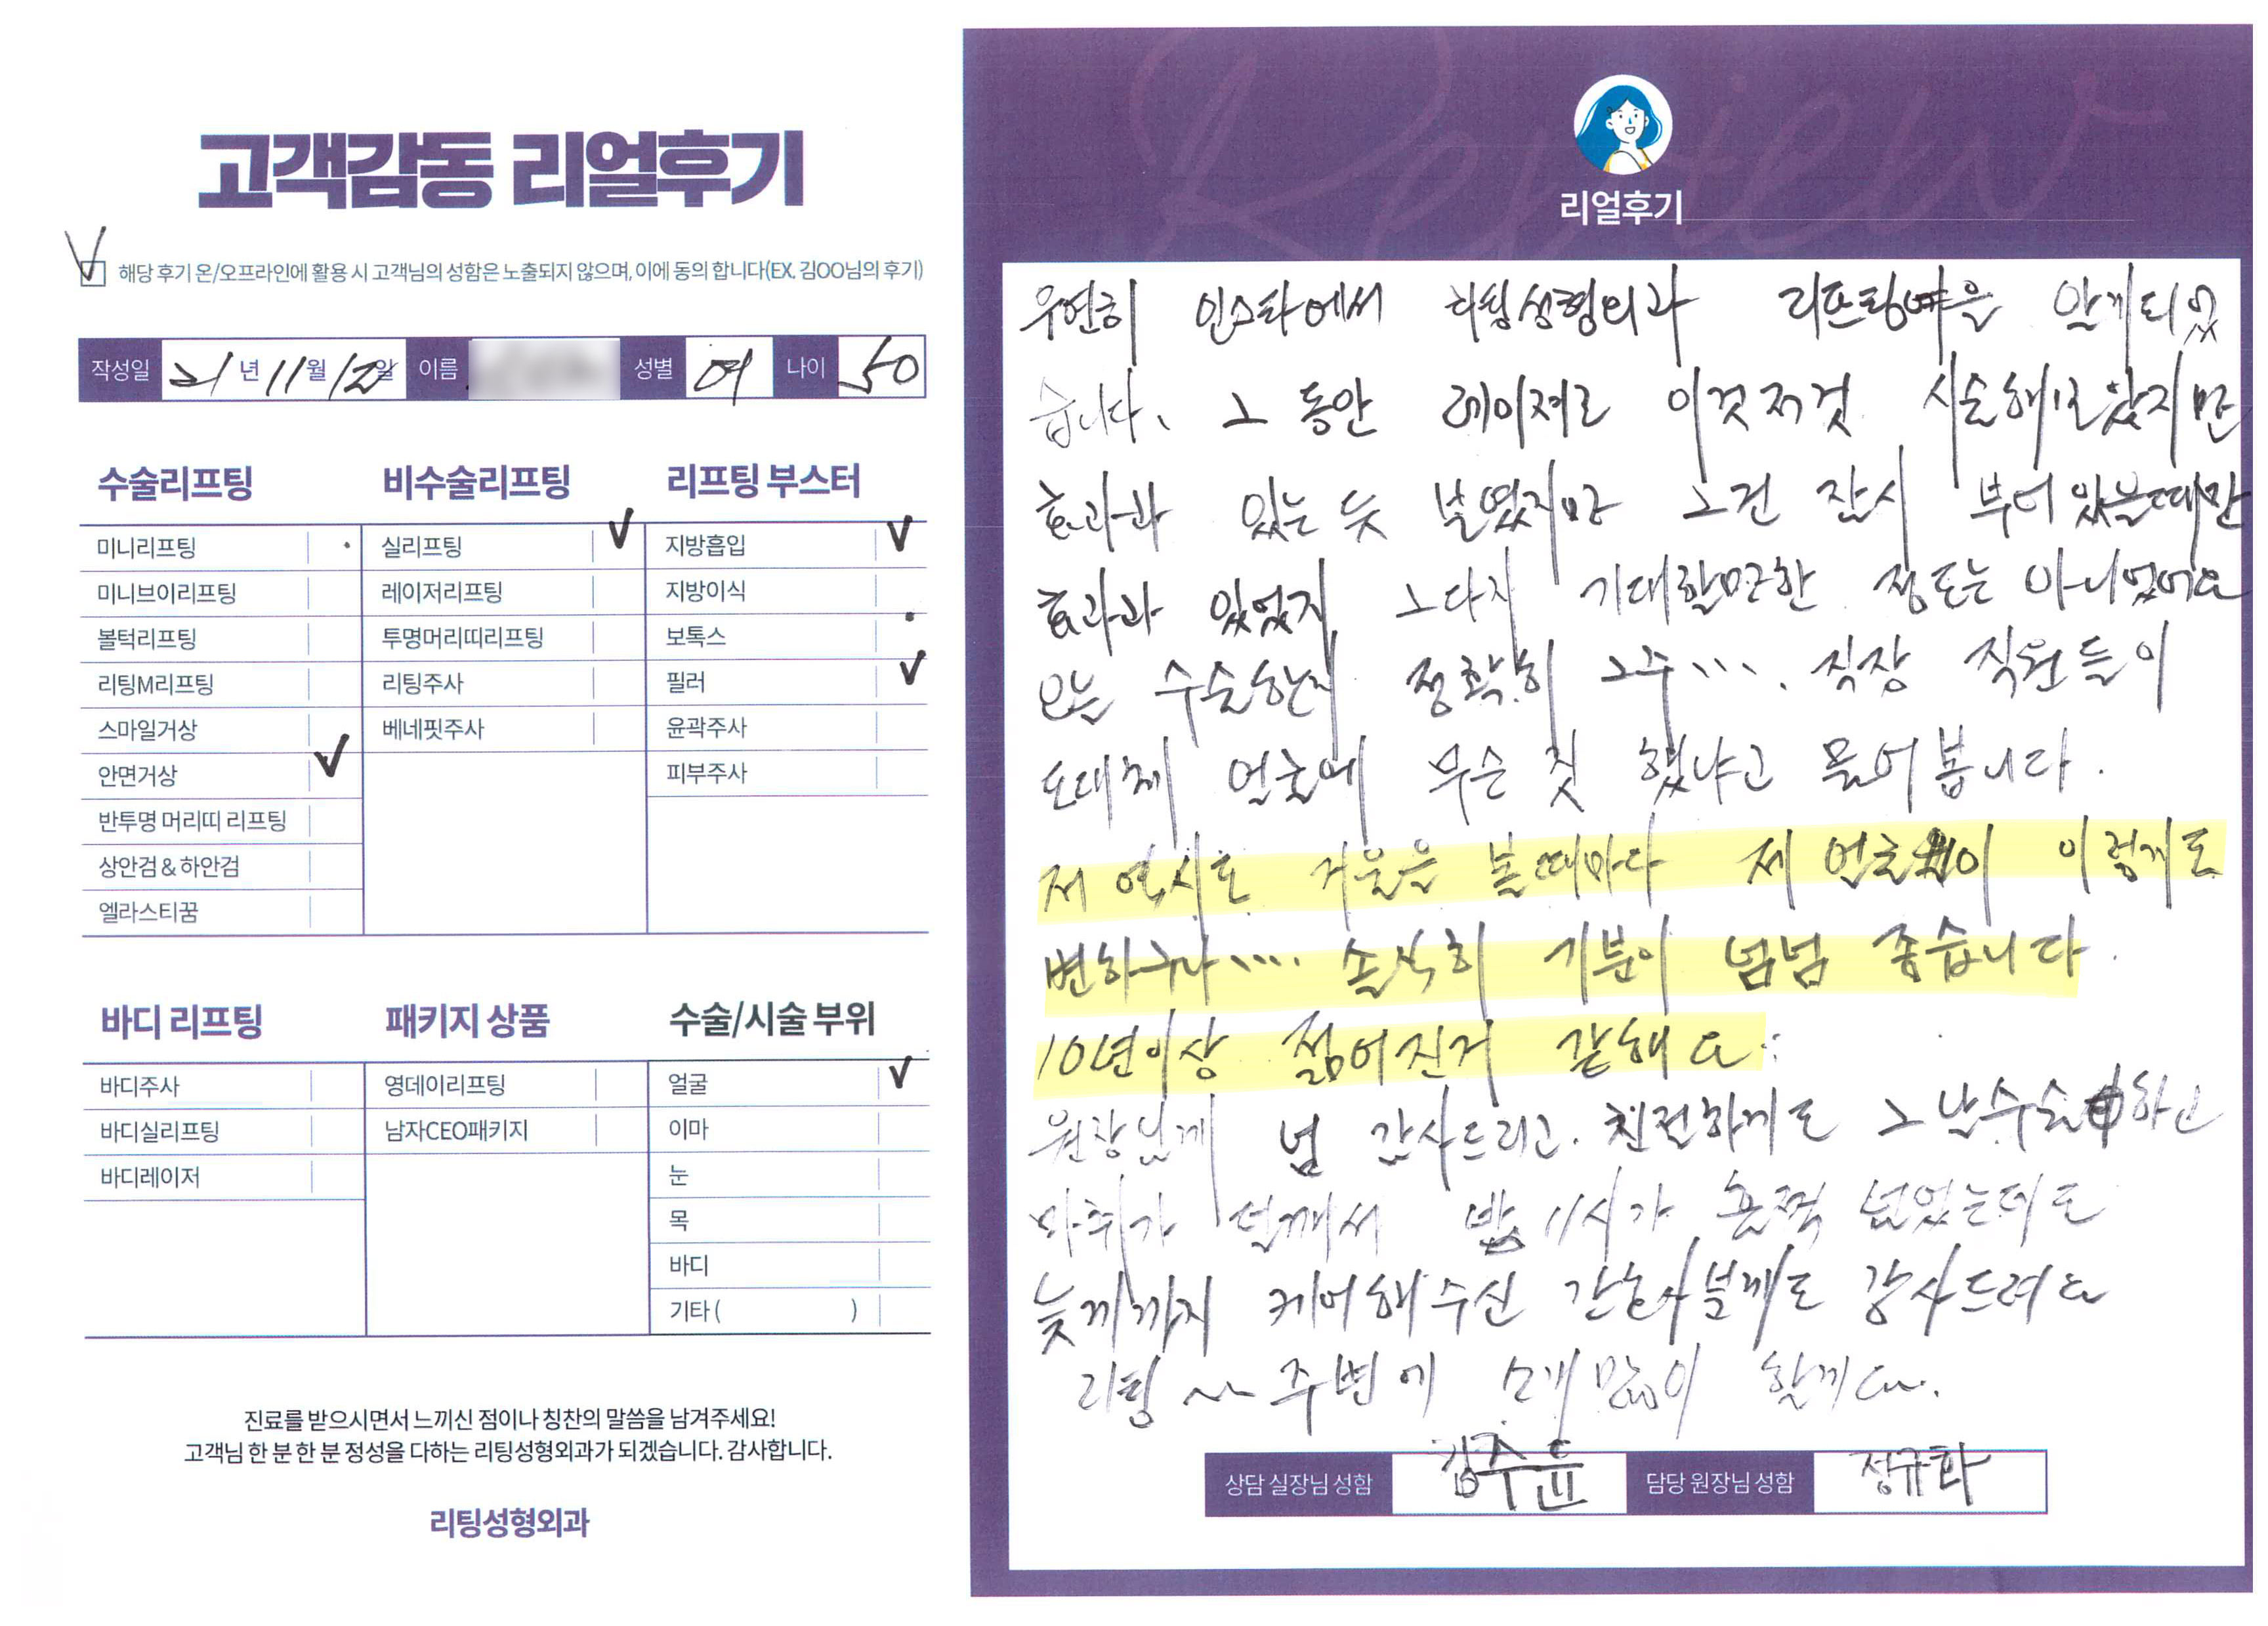 고객감동 리얼후기
해당 후기 온/오프라인에 활용 시 고객님의 성함은 노출되지 않으며, 이에 동의 합니다(EX. 김OO님의 후기)
작성일 21년 11월 12일 이름 성별 여 나이 50
수술리프팅
미니리프팅
미니브이리프팅
볼턱리프팅
리팅M리프팅
스마일거상
안면거상
반투명 머리띠 리프팅
상안검 & 하안검
엘라스티꿈
비수술리프팅
실리프팅
레이저리프팅
투명머리띠리프팅
리팅주사
베네핏주사
리프팅 부스터
지방흡입
지방이식
보톡스
필러
윤곽주사
피부주사
바디 리프팅
바디주사
바디실리프팅
바디레이저
패키지 상품
영데이리프팅
남자CEO패키지
수술/시술 부위
얼굴
이마
눈
목
바디
기타 ( )
진료를 받으시면서 느끼신 점이나 칭찬의 말씀을 남겨주세요!
고객님 한 분 한 분 정성을 다하는 리팅성형외과가 되겠습니다. 감사합니다.
리팅성형외과
Review
리얼후기
우연히 인스타에서 리팅성형외과 알게되었
습니다. 그 동안 레이져로 이것저것 시술해보았지만
효과과 있는 듯 보였지만 그건 잠시 부어 있을때만
효과과 있었지 그다지 기대할만한 정도는 아니었어요
오늘 수술한지 정확히 직장 직원들이
도대체 얼굴에 무슨 짓 했냐고 물어봅니다.
저 역시도 거울을 볼때마다 제 얼굴이 이렇게도
변하구나.... 솔직히 기분이 넘넘 좋습니다.
10년이상 젊어진거 같해요.
원장님께 넘 감사드리고. 친전하게도 그날수술하고
마취가 덜깨서 밤 11시가 훌쩍 넘었는데도
늦게까지 케어해주신 간호사분께도 감사드려요
리팅 ~~ 주변에 소개 많이 할께요.
상담 실장님 성함 김주윤 담당 원장님 성함 정규화